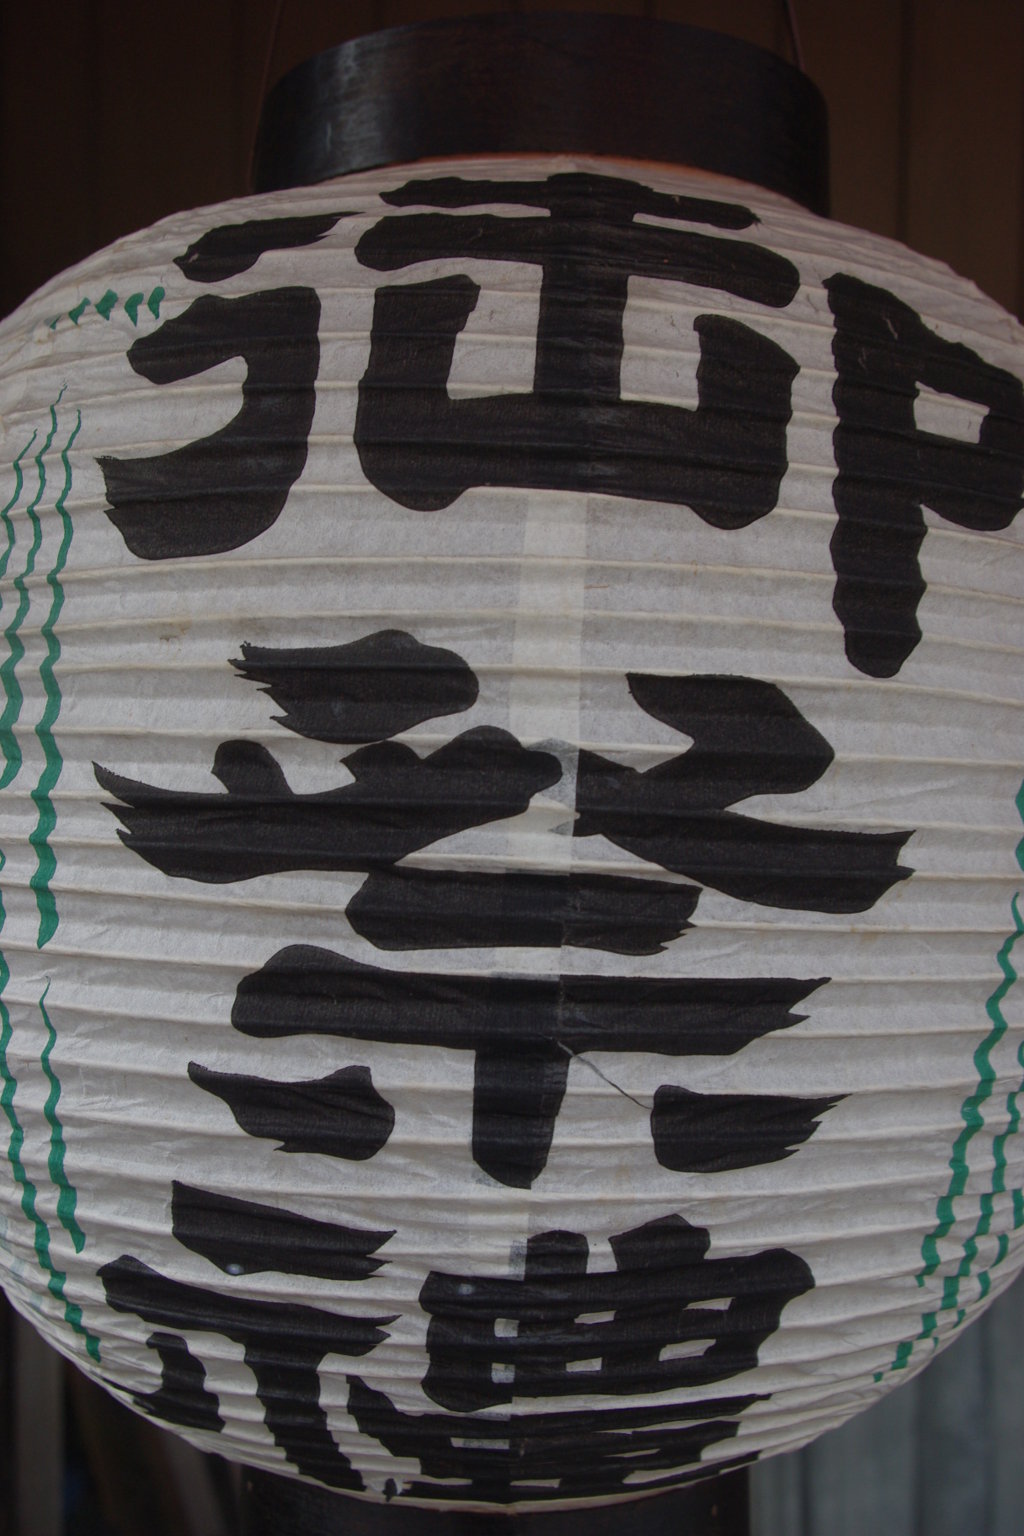 御祭禮